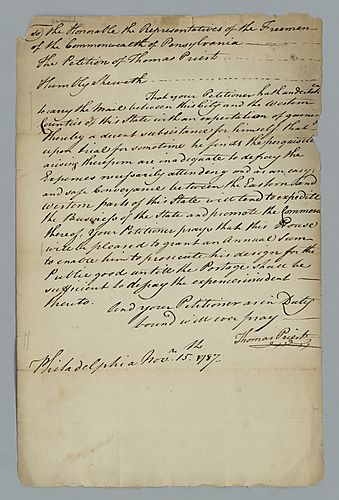 To the Honorable the Representatives of the Freemen
of the Commonwealth of Pensylvania
The Petition of Thomas Priest
Humbly Sheweth
That your Petitioner hath undertak
to carry the Mail between this City and the Western
Counties of this State with an expectation of gaining
thereby a decent subsistance for himself that
upon trial for sometime he finds the perquisites
arising therefrom are inadequate to defray the
Expences necessarily attending and as an easy
and safe Conveyance between the Eastern and
Western parts of this State will tend to expedite
the Business of the State and promote the Commerce
thereof, Your Petitioner prays that this House
will be pleased to grant an Annual Sum
to enable him to prosecute his design for the
Public good untill the Postage shall be
sufficient to defray the expence incident
thereto.
And your Petitioner as in Duty
bound will ever pray
Thomas Priest
Philadelphia Novr. 15th. 1787.